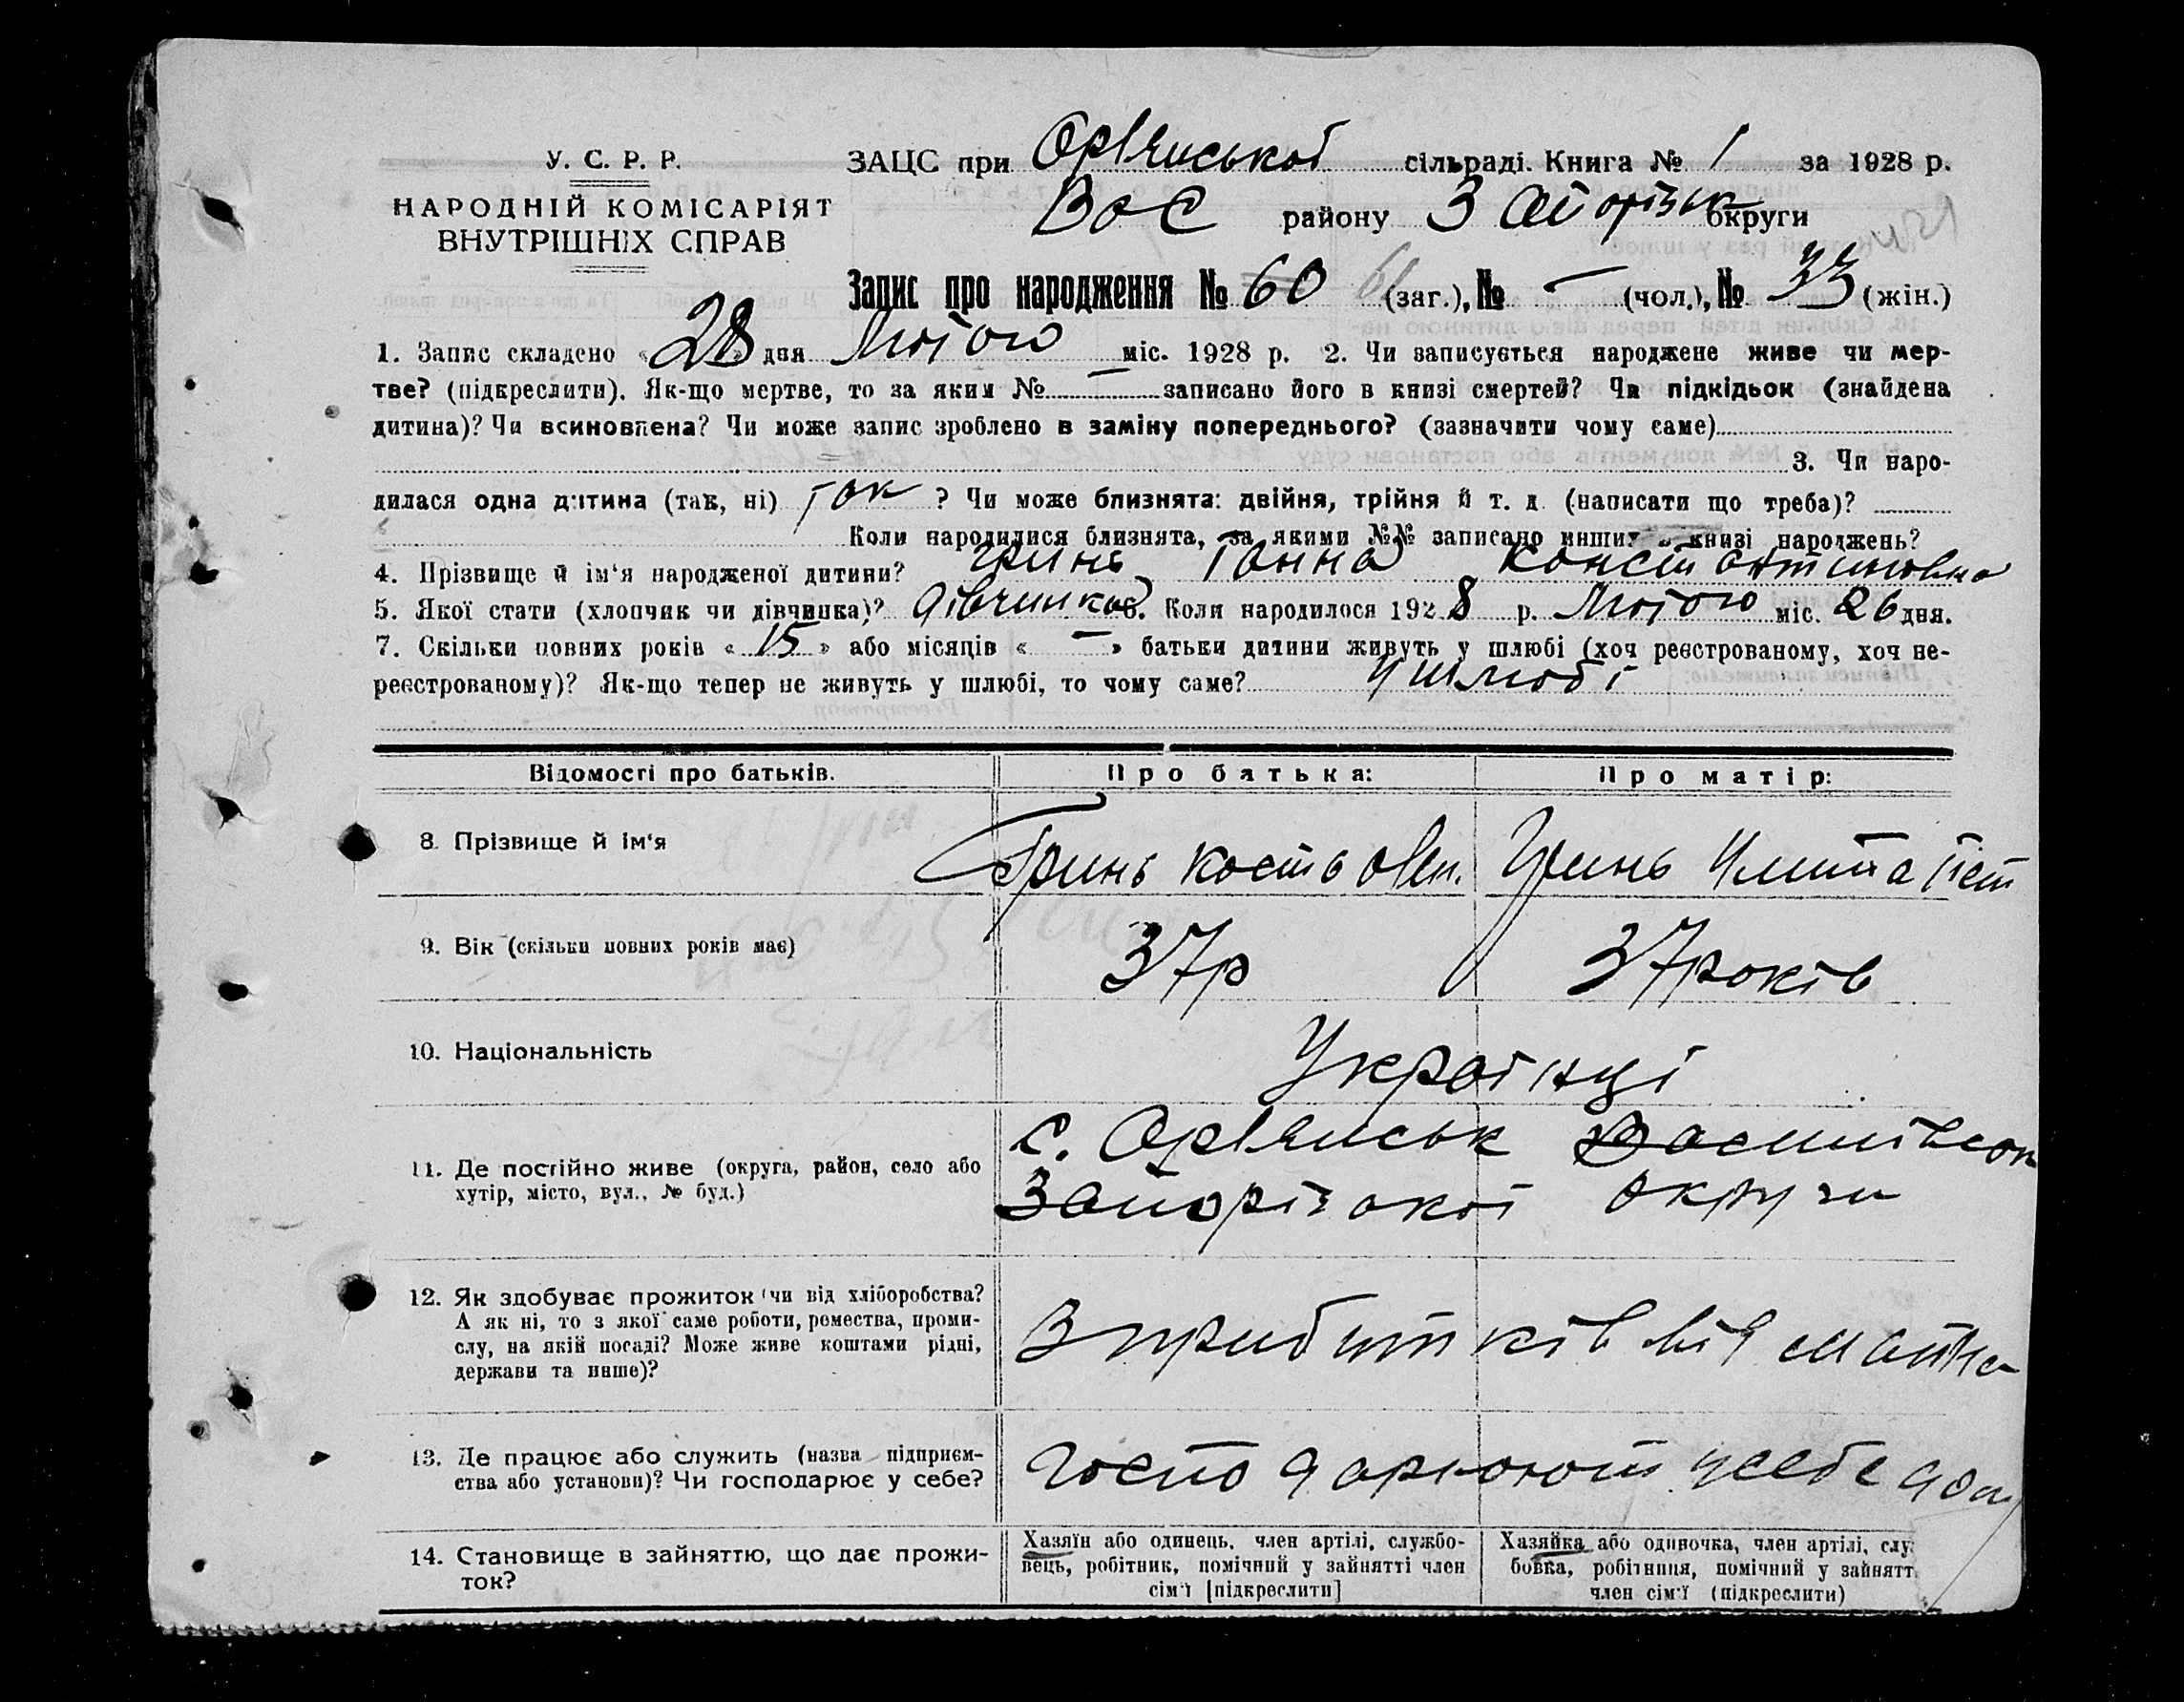 У. С. Р. Р.
НАРОДНІЙ КОМІСАРІЯТ
ВНУТРІШНІХ СПРАВ
ЗАЦС при Орлянської сільраді. Книга № 1 за 1928 р.
Вас району Запорізьк округи
Запис про народження № 60 61 (заг.), № — (чол.), № 33 (жін.)
1. Запис складено « 28 » дня Лютого міс. 1928 р. 2. Чи записується народжене живе чи мер-
тве? (підкреслити). Як-що мертве, то за яким № — записано його в книзі смертей? Чи підкідьок (знайдена
дитина)? Чи всиновлена? Чи може запис зроблено в заміну попереднього? (зазначити чому саме)
3. Чи наро-
дилася одна дитина (так, ні) так ? Чи може близнята: двійня, трійня й т. д. (написати що треба)?
Коли народилися близнята, за якими №№ записано инших в книзі народжень?
4. Прізвище й ім‘я народженої дитини? Гринь Ганна Константиновна
5. Якої стати (хлопчик чи дівчинка)? дівчинка 6. Коли народилося 1928 р. Лютого міс. 26 дня.
7. Скільки повних років « 15 » або місяців « — » батьки дитини живуть у шлюбі (хоч реєстрованому, хоч не-
реєстрованому)? Як-що тепер не живуть у шлюбі, то чому саме? у шлюбі
Відомості про батьків.
Про батька:
Про матір:
8. Прізвище й ім‘я
Гринь Кость
Гринь
9. Вік (скільки повних років має)
37р
37років
10. Національність
Українці
11. Де постійно живе (округа, район, село або
хутір, місто, вул., № буд.)
с. Орлянськ
Запорізької округи
12. Як здобуває прожиток (чи від хліборобства?
А як ні, то з якої саме роботи, ремества, проми-
слу, на якій посаді? Може живе коштами рідні,
держави та инше)?
З прибутків від майна
13. Де працює або служить (назва підприєм-
ства або установи)? Чи господарює у себе?
Господарюют у себе
14. Становище в зайняттю, що дає прожи-
ток?
Хазяїн або одинець, член артілі, службо-
вець, робітник, помічний у зайнятті член
сім‘ї [підкреслити]
Хазяйка або одиночка, член артілі, слу
бовка, робітниця, помічний у зайнятт
член сім‘ї (підкреслити)